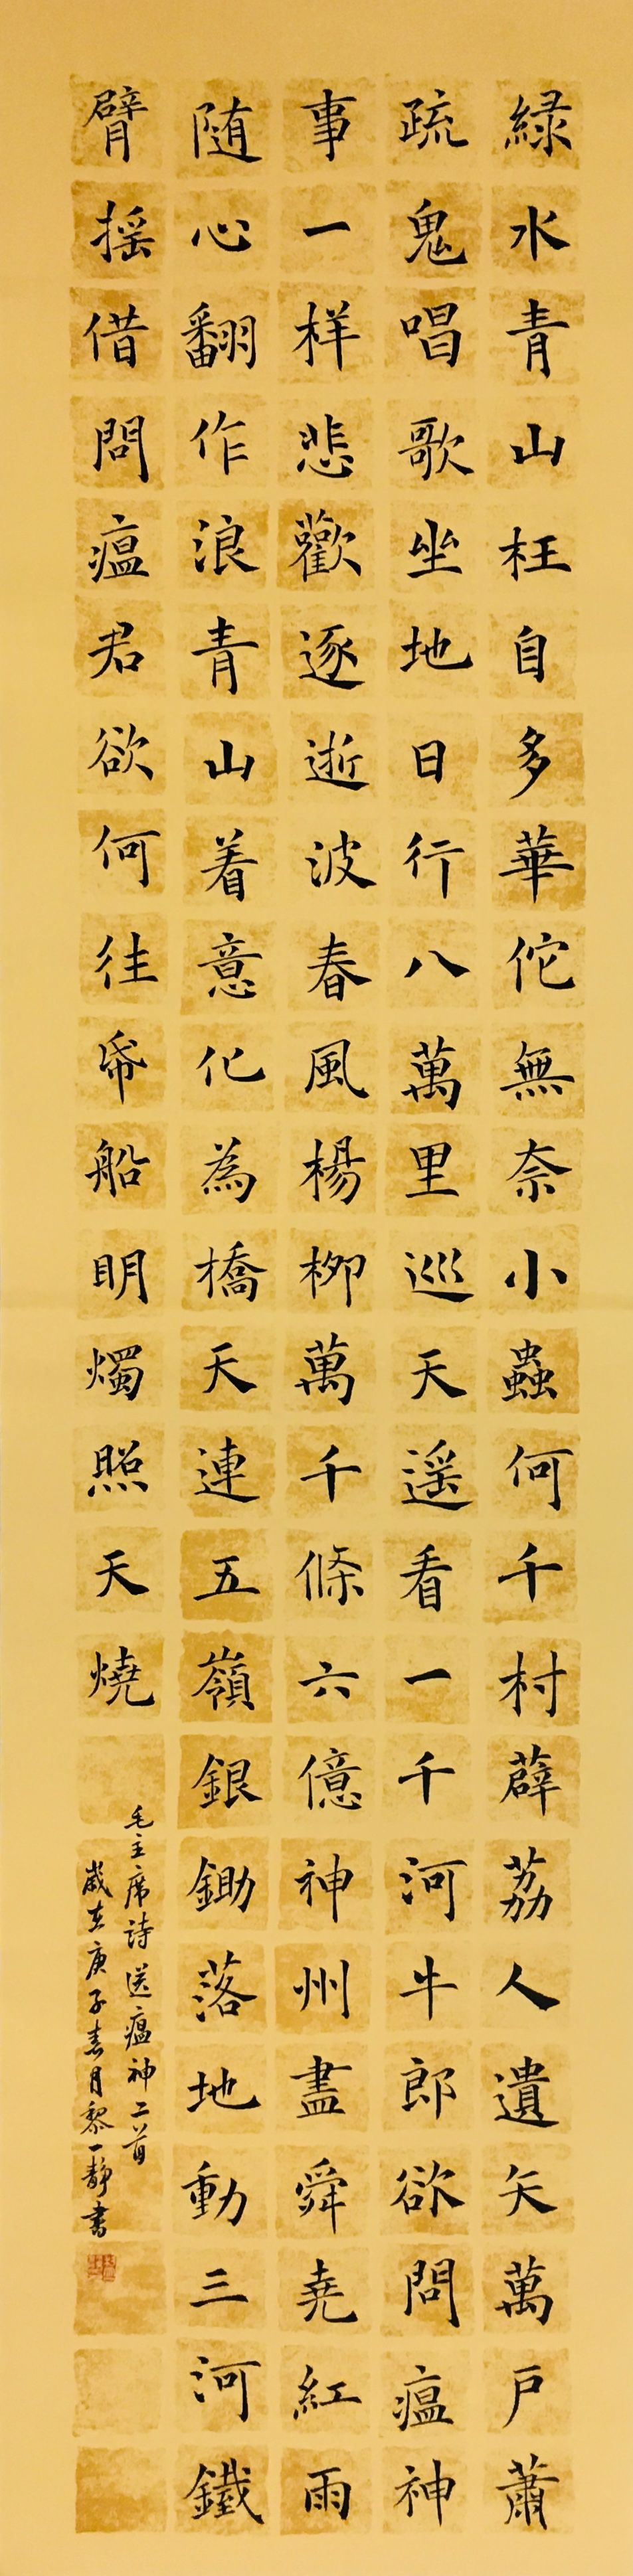 緑水青山枉自多華佗無奈小蟲何千村薜荔人遺矢萬戶蕭
疏鬼唱歌坐地日行八萬里巡天遥看一千河牛郎欲問瘟神
事一样悲歡逐逝波春風楊柳萬千條六億神州盡舜堯紅雨
随心翻作浪青山着意化為橋天連五嶺銀鋤落地動三河鐵
臂摇借問瘟君欲何往帋船明燭照天燒
毛主席詩送瘟神二首
歲在庚子春月黎一靜書